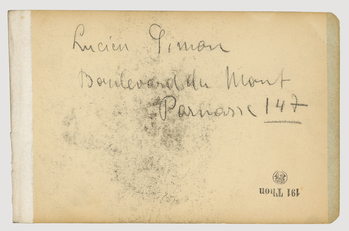 Lucien Simon
Boulevard du Mont
Parnasse 147
191 Thon